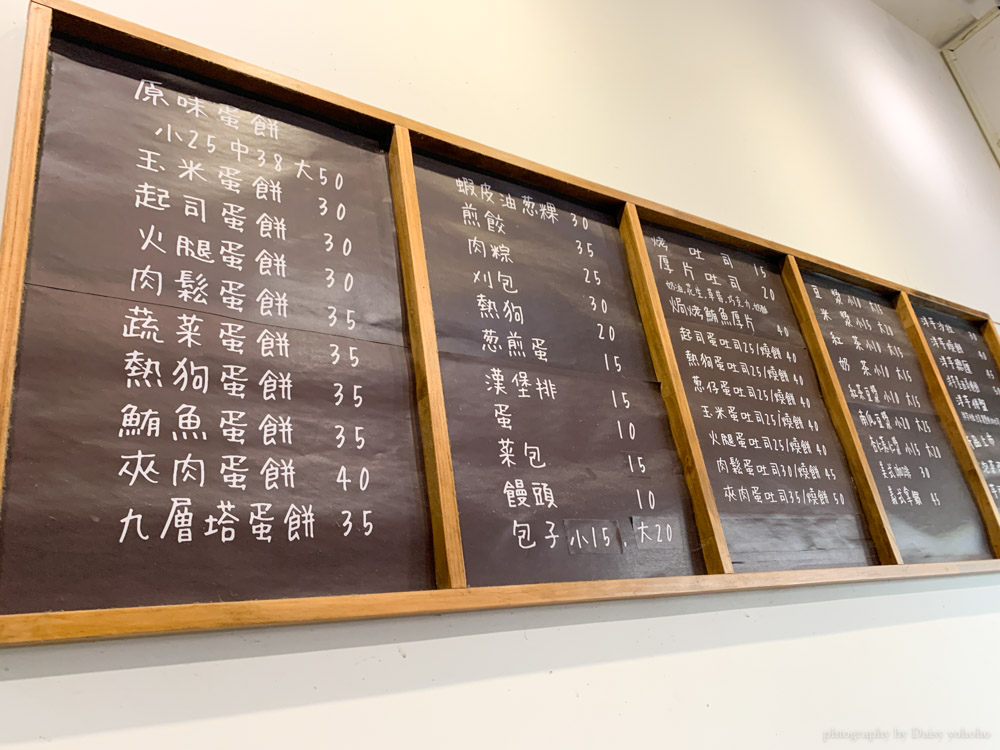 原味蛋餅
小25 中38 大50
玉米蛋餅 30
起司蛋餅 30
火腿蛋餅 30
肉鬆蛋餅 35
蔬菜蛋餅 35
熱狗蛋餅 35
鮪魚蛋餅 35
夾肉蛋餅 40
九層塔蛋餅 35
蝦皮油葱粿 30
煎餃 35
肉粽 25
刈包 30
熱狗 20
葱煎蛋 15
漢堡排 15
蛋 10
菜包 15
饅頭 10
包子 小15, 大20
烤吐司 15
厚片吐司 20
奶油,花生,草莓,巧克力,奶酥
焗烤鮪魚厚片 40
起司蛋吐司25/燒餅 40
熱狗蛋吐司25/燒餅 40
葱仔蛋吐司25/燒餅 40
玉米蛋吐司25/燒餅 40
火腿蛋吐司25/燒餅 40
肉鬆蛋吐司30/燒餅 45
夾肉蛋吐司35/燒餅 50
豆漿 小10 大15
米漿 小15 大20
紅茶 小10 大15
奶茶 小10 大15
紅茶豆漿 小10 大15
小20 大25
小15 大20
美式咖啡 30
45
photography by Daisy yohoho